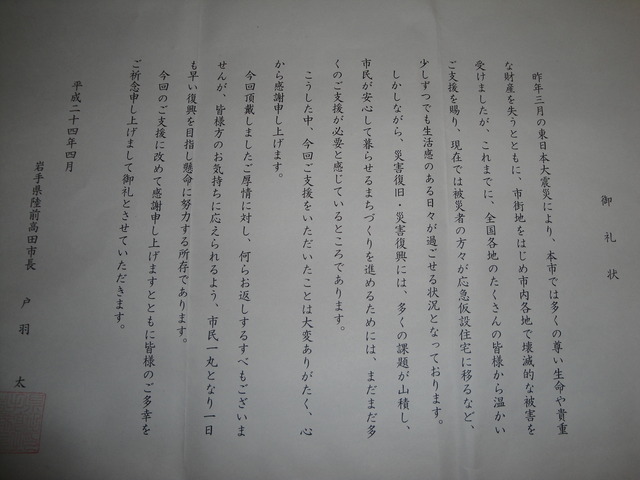 御礼状
昨年三月の東日本大震災により、本市では多くの尊い生命や貴重
な財産を失うとともに、市街地をはじめ市内各地で壊滅的な被害を
受けましたが、これまでに、全国各地のたくさんの皆様から温かい
ご支援を賜り、現在では被災者の方々が応急仮設住宅に移るなど、
少しずつでも生活感のある日々が過ごせる状況となっております。
しかしながら、災害復旧・災害復興には、多くの課題が山積し、
市民が安心して暮らせるまちづくりを進めるためには、まだまだ多
くのご支援が必要と感じているところであります。
こうした中、今回ご支援をいただいたことは大変ありがたく、心
から感謝申し上げます。
今回頂戴しましたご厚情に対し、何らお返しするすべもございま
せんが、皆様方のお気持ちに応えられるよう、市民一丸となり一日
も早い復興を目指し懸命に努力する所存であります。
今回のご支援に改めて感謝申し上げますとともに皆様のご多幸を
ご祈念申し上げまして御礼とさせていただきます。
平成二十四年四月
岩手県陸前高田市長 戸羽 太